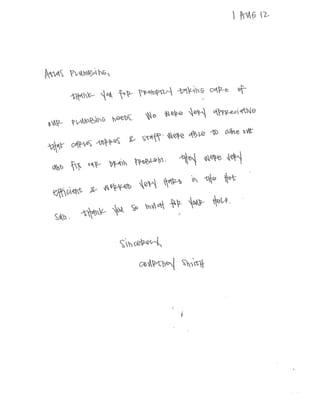 1 AUG 12
Atlas Plumbing,
Thank you for promptly taking care of
our plumbing needs. We were very appreciative
that Carlos Torres & staff were able to come out
and fix our drain problem. They were very
efficient & worked very hard in the hot
sun. Thank you so much for your help.
Sincerely,
Courtney Smith